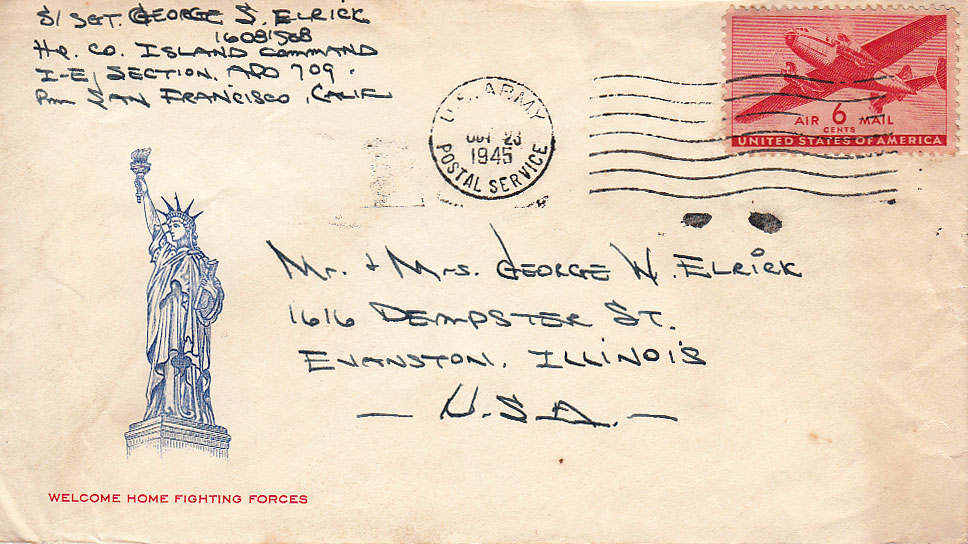 S/SGT. GEORGE S. ELRICK
16081508
Hq. Co. ISLAND COMMAND
I-E, SECTION, APO 709.
Pm SAN FRANCISCO, CALIF
U.S. ARMY
OCT 23
1945
POSTAL SERVICE
AIR 6 MAIL
CENTS
UNITED STATES OF AMERICA
Mr. + Mrs. GEORGE W. ELRICK
1616 DEMPSTER ST.
EVANSTON, ILLINOIS
— U.S.A. —
WELCOME HOME FIGHTING FORCES